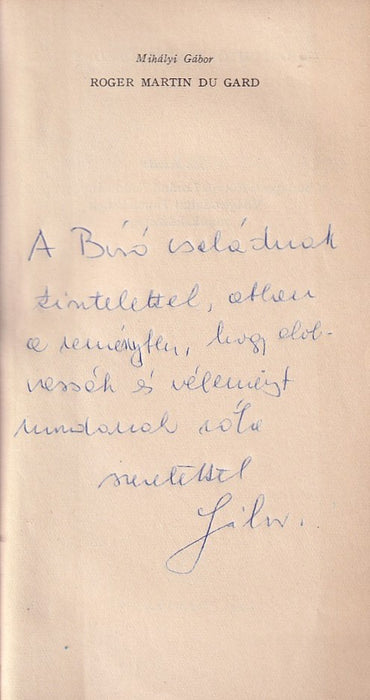 Mihályi Gábor
ROGER MARTIN DU GARD
A Biró családnak
tisztelettel, abban
a reményben, hogy elol-
vassák és véleményt
mondanak róla
szeretettel
Gábor.